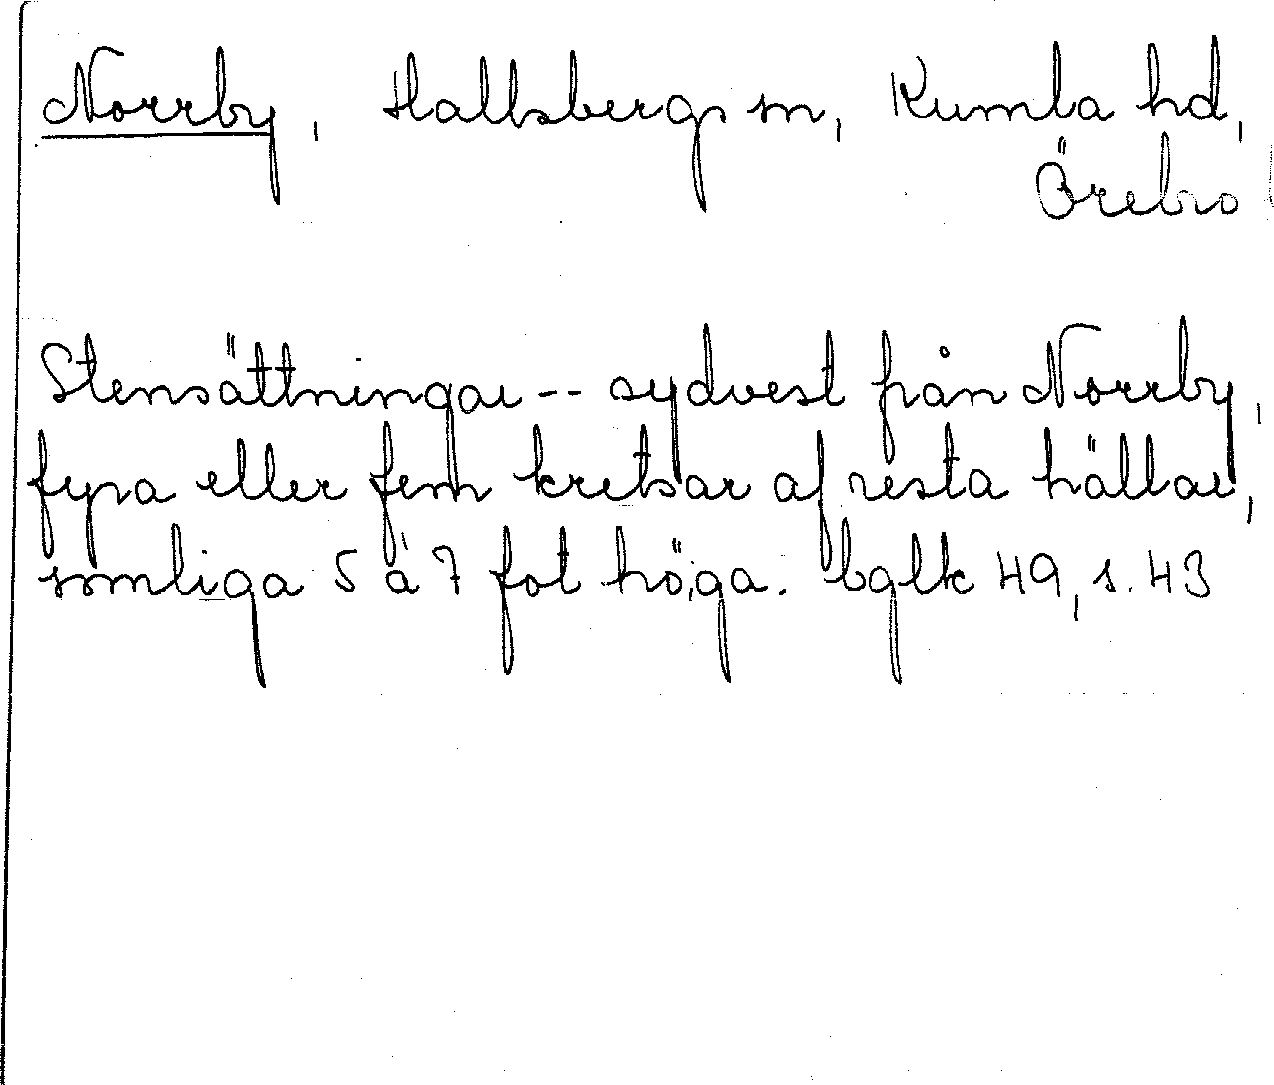 Norrby, Hallsbergs sn, Kumla hd,
Örebro l
Stensättningar -- sydvest från Norrby,
fyra eller fem kretsar af resta hällar,
somliga 5 à 7 fot höga. bglk 49, s. 43